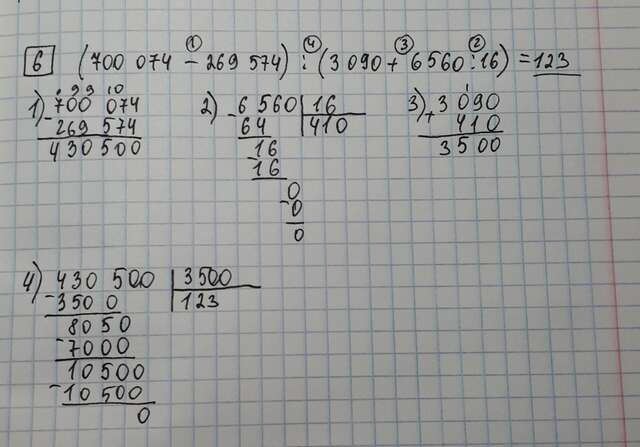 6 (700 074 - 269 574) : (3 090 + 6 560 : 16) = 123
① ④ ③ ②
1) 700 074
- 269 574
430 500
2) 6 560 | 16
- 64 | 410
16
- 16
0
- 0
0
3) 3 090
+ 410
3 500
4) 430 500 | 3500
- 350 0 | 123
80 50
- 70 00
10 500
- 10 500
0